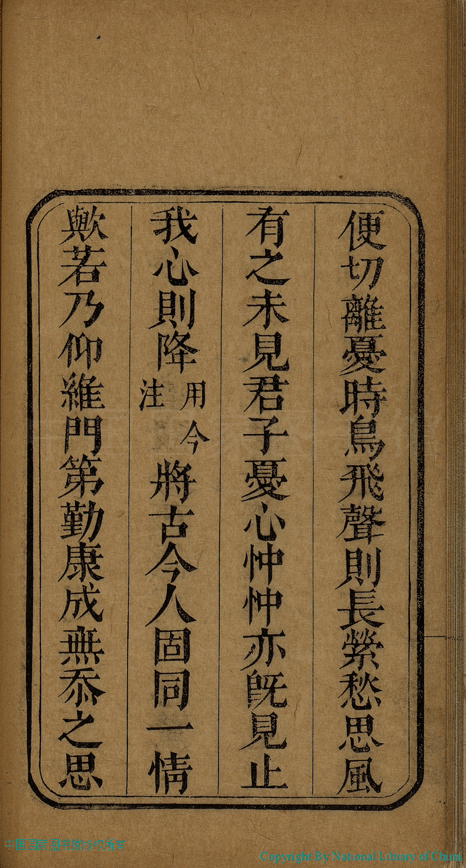 便切離憂時鳥飛聲則長縈愁思風
有之未見君子憂心忡忡亦旣見止
我心則降用今注將古今人固同一情
歟若乃仰維門第勤康成無忝之思
Copyright By National Library of China